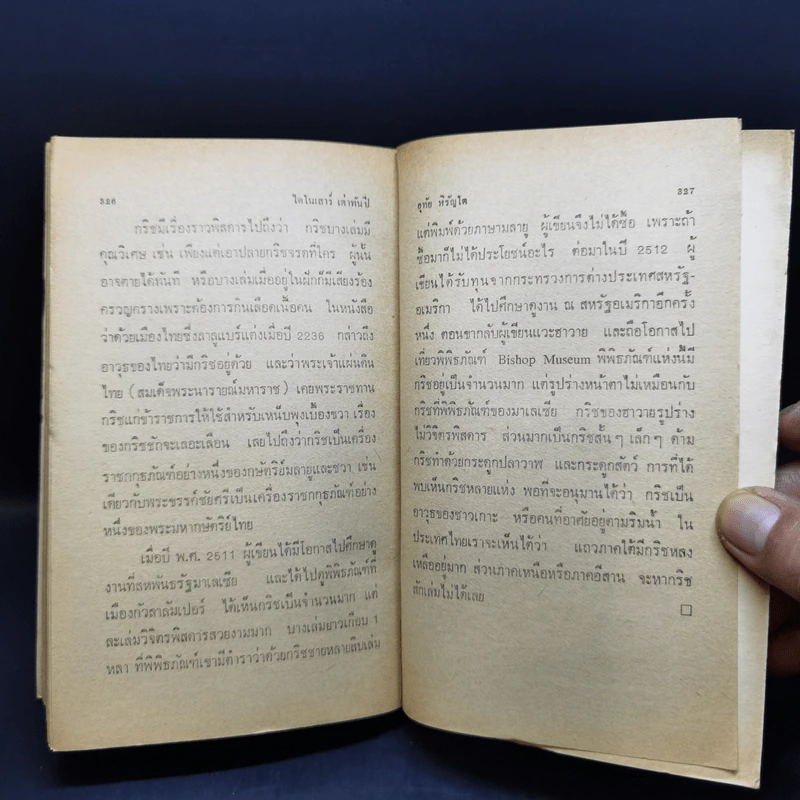 326 ไดโนเสาร์ เต่าพันปี
กริชมีเรื่องราวพิสดารไปถึงว่า กริชบางเล่มมี
คุณวิเศษ เช่น เพียงแต่เอาปลายกริชจรดที่ใคร ผู้นั้น
อาจตายได้ทันที หรือบางเล่มเมื่ออยู่ในฝักก็มีเสียงร้อง
ครวญครางเพราะต้องการกินเลือดเนื้อคน ในหนังสือ
ว่าด้วยเมืองไทยซึ่งลาลูแบร์แต่งเมื่อปี 2236 กล่าวถึง
อาวุธของไทยว่ามีกริชอยู่ด้วย และว่าพระเจ้าแผ่นดิน
ไทย (สมเด็จพระนารายณ์มหาราช) เคยพระราชทาน
กริชแก่ข้าราชการให้ใช้สำหรับเหน็บพุงเบื้องขวา เรื่อง
ของกริชชักจะเลอะเลือน เลยไปถึงว่ากริชเป็นเครื่อง
ราชกกุธภัณฑ์อย่างหนึ่งของกษัตริย์มลายูและชวา เช่น
เดียวกับพระขรรค์ชัยศรีเป็นเครื่องราชกกุธภัณฑ์อย่าง
หนึ่งของพระมหากษัตริย์ไทย
เมื่อปี พ.ศ. 2511 ผู้เขียนได้มีโอกาสไปศึกษาดู
งานที่สหพันธรัฐมาเลเซีย และได้ไปดูพิพิธภัณฑ์ที่
เมืองกัวลาลัมเปอร์ ได้เห็นกริชเป็นจำนวนมาก แต่
ละเล่มวิจิตรพิสดารสวยงามมาก บางเล่มยาวเกือบ 1
หลา ที่พิพิธภัณฑ์เขามีตำราว่าด้วยกริชขายหลายสิบเล่ม
อุทัย หิรัญโต 327
แต่พิมพ์ด้วยภาษามลายู ผู้เขียนจึงไม่ได้ซื้อ เพราะถ้า
ซื้อมาก็ไม่ได้ประโยชน์อะไร ต่อมาในปี 2512 ผู้
เขียนได้รับทุนจากกระทรวงการต่างประเทศสหรัฐ-
อเมริกา ได้ไปศึกษาดูงาน ณ สหรัฐอเมริกาอีกครั้ง
หนึ่ง ตอนขากลับผู้เขียนแวะฮาวาย และถือโอกาสไป
เที่ยวพิพิธภัณฑ์ Bishop Museum พิพิธภัณฑ์แห่งนี้มี
กริชอยู่เป็นจำนวนมาก แต่รูปร่างหน้าตาไม่เหมือนกับ
กริชที่พิพิธภัณฑ์ของมาเลเซีย กริชของฮาวายรูปร่าง
ไม่วิจิตรพิสดาร ส่วนมากเป็นกริชสั้น ๆ เล็ก ๆ ด้าม
กริชทำด้วยกระดูกปลาวาฬ และกระดูกสัตว์ การที่ได้
พบเห็นกริชหลายแห่ง พอที่จะอนุมานได้ว่า กริชเป็น
อาวุธของชาวเกาะ หรือคนที่อาศัยอยู่ตามริมน้ำ ใน
ประเทศไทยเราจะเห็นได้ว่า แถวภาคใต้มีกริชหลง
เหลืออยู่มาก ส่วนภาคเหนือหรือภาคอีสาน จะหากริช
สักเล่มไม่ได้เลย